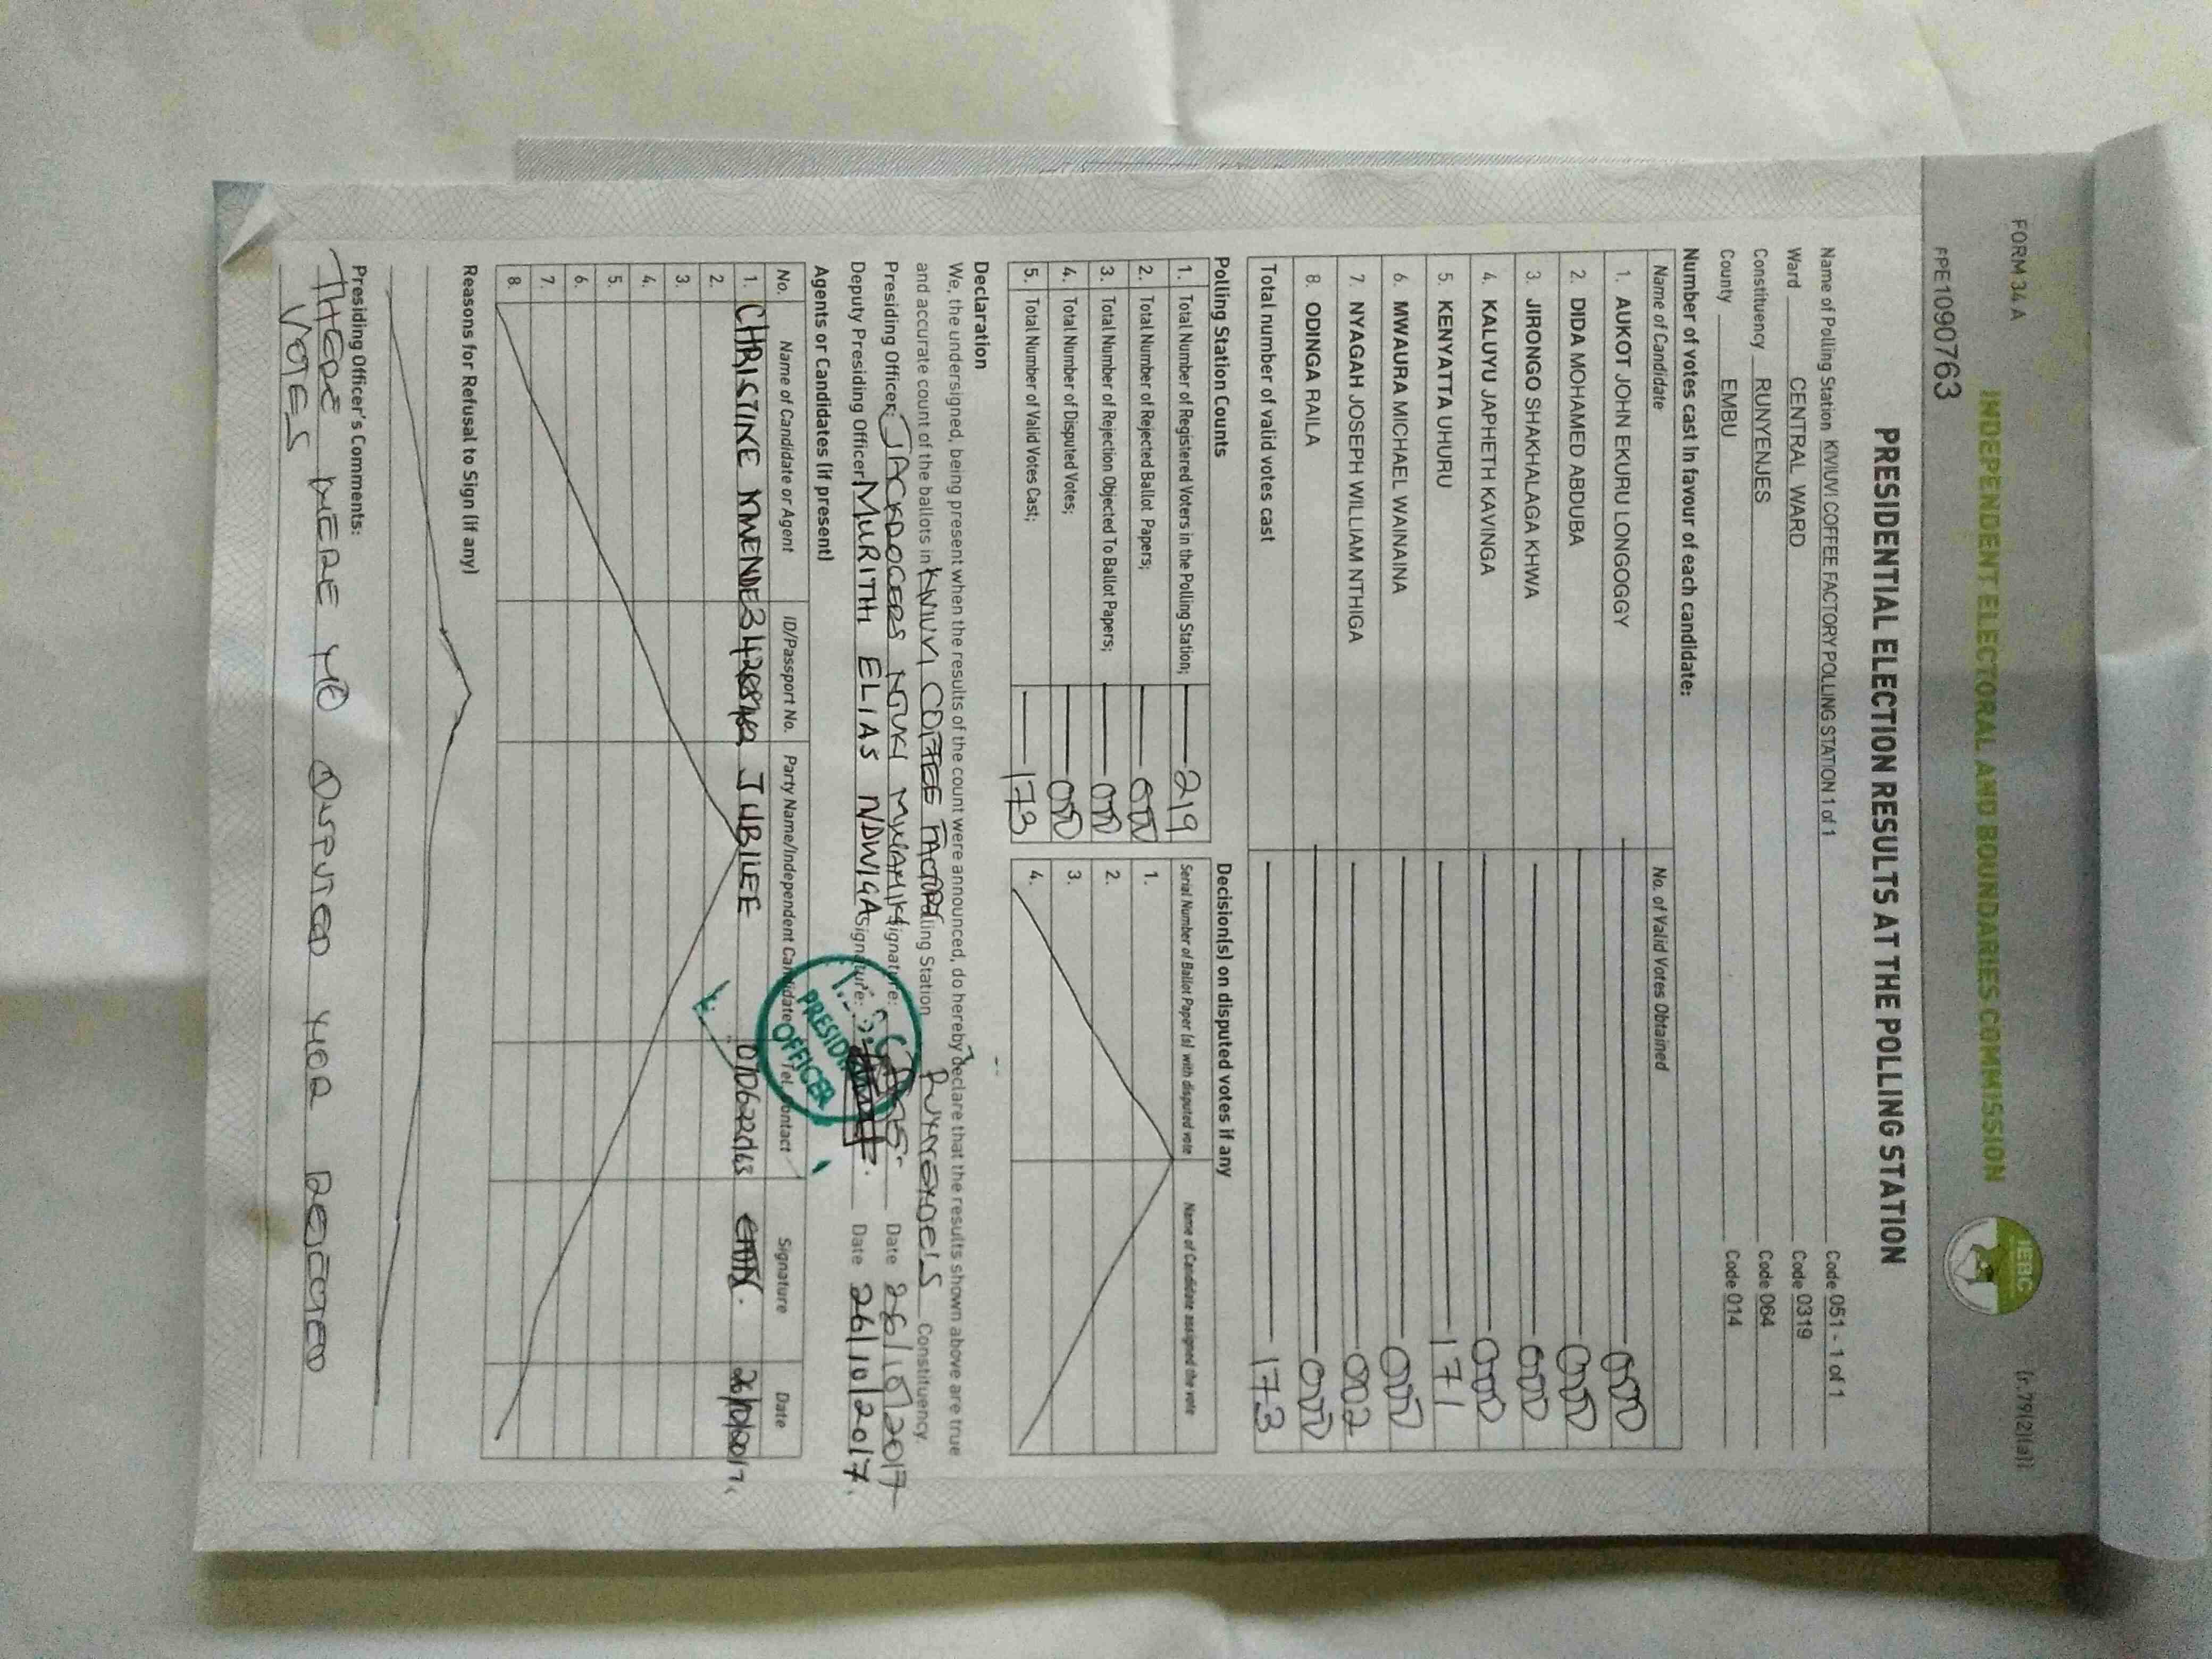 FORM 34 A
(r.79(2)(a))
INDEPENDENT ELECTORAL AND BOUNDARIES COMMISSION
IEBC
FPE1090763
PRESIDENTIAL ELECTION RESULTS AT THE POLLING STATION
Name of Polling Station KIVIUVI COFFEE FACTORY POLLING STATION 1 of 1 Code 051 - 1 of 1
Ward CENTRAL WARD Code 0319
Constituency RUNYENJES Code 064
County EMBU Code 014
Number of votes cast in favour of each candidate:
Name of Candidate No. of Valid Votes Obtained
1. AUKOT JOHN EKURU LONGOGGY 000
2. DIDA MOHAMED ABDUBA 000
3. JIRONGO SHAKHALAGA KHWA 000
4. KALUYU JAPHETH KAVINGA 000
5. KENYATTA UHURU 171
6. MWAURA MICHAEL WAINAINA 000
7. NYAGAH JOSEPH WILLIAM NTHIGA 002
8. ODINGA RAILA 000
Total number of valid votes cast 173
Polling Station Counts
1. Total Number of Registered Voters in the Polling Station; 219
2. Total Number of Rejected Ballot Papers; 000
3. Total Number of Rejection Objected To Ballot Papers; 000
4. Total Number of Disputed Votes; 000
5. Total Number of Valid Votes Cast; 173
Decision(s) on disputed votes if any
Serial Number of Ballot Paper (s) with disputed vote Name of Candidate assigned the vote
1.
2.
3.
4.
Declaration
We, the undersigned, being present when the results of the count were announced, do hereby declare that the results shown above are true
and accurate count of the ballots in KIVIUVI COFFEE FACTORY Polling Station RUNYENJES Constituency.
Presiding Officer: JACKDOGERS Signature: Date 26/10/2017
Deputy Presiding Officer: MURITHI ELIAS NDWIGA Signature: Date 26/10/2017.
PRESIDING OFFICER
Agents or Candidates (if present)
No. Name of Candidate or Agent ID/Passport No. Party Name/Independent Candidate Tel. Contact Signature Date
1. CHRISTINE MWENDE JUBILEE 26/10/2017
2.
3.
4.
5.
6.
7.
8.
Reasons for Refusal to Sign (if any)
Presiding Officer's Comments:
THERE WERE NO DISPUTED NOR REJECTED
VOTES